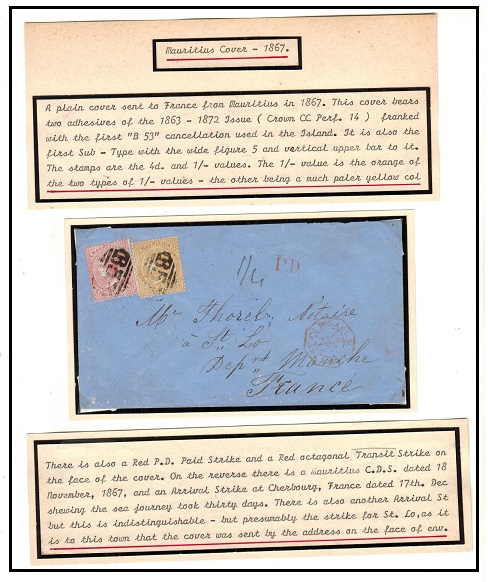 Mauritius Cover - 1867.
A plain cover sent to France from Mauritius in 1867. This cover bears
two adhesives of the 1863 - 1872 Issue ( Crown CC Perf. 14 ) franked
with the first "B 53" cancellation used in the Island. It is also the
first Sub - Type with the wide figure 5 and vertical upper bar to it.
The stamps are the 4d. and 1/- values. The 1/- value is the orange of
the two types of 1/- values - the other being a much paler yellow col
1/4
P.D.
Mr Thorel, Notaire
à St Lo
Dept Manche
France
There is also a Red P.D. Paid Strike and a Red octagonal Transit Strike on
the face of the cover. On the reverse there is a Mauritius C.D.S. dated 18
November, 1867, and an Arrival Strike at Cherbourg, France dated 17th. Dec
shewing the sea journey took thirty days. There is also another Arrival St
but this is indistinguishable - but presumably the strike for St. Lo, as it
is to this town that the cover was sent by the address on the face of env.